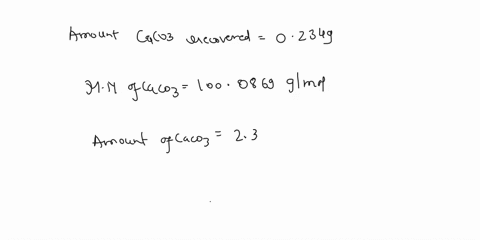 Amount CaCO3 recovered = 0.234g
M.M of CaCO3 = 100.0869 g/mol
Amount of CaCO3 = 2.3